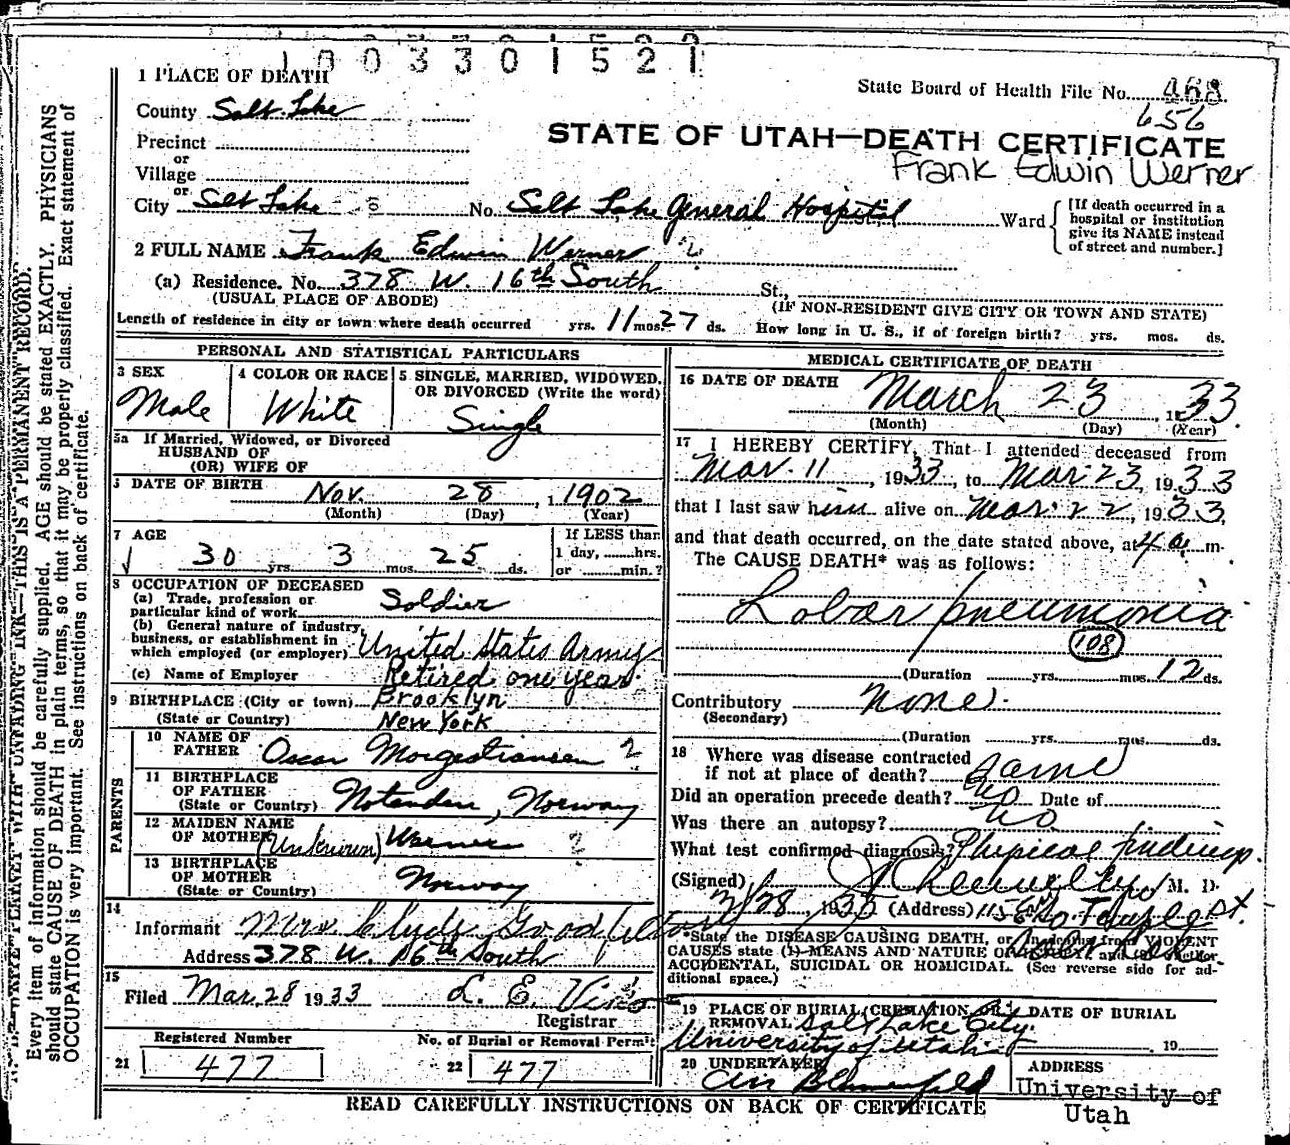 1003301521
1 PLACE OF DEATH
State Board of Health File No. 468
County Salt Lake
656
STATE OF UTAH—DEATH CERTIFICATE
Precinct
or
Frank Edwin Werner
Village
or
City Salt Lake No. Salt Lake General Hospital Ward
[If death occurred in a
hospital or institution
give its NAME instead
of street and number.]
2 FULL NAME Frank Edwin Werner 2
(a) Residence. No. 378 W. 16th South St.,
(USUAL PLACE OF ABODE) (IF NON-RESIDENT GIVE CITY OR TOWN AND STATE)
Length of residence in city or town where death occurred yrs. 11 mos. 27 ds. How long in U. S., if of foreign birth? yrs. mos. ds.
PERSONAL AND STATISTICAL PARTICULARS
3 SEX
Male
4 COLOR OR RACE
White
5 SINGLE, MARRIED, WIDOWED,
OR DIVORCED (Write the word)
Single
5a If Married, Widowed, or Divorced
HUSBAND OF
(OR) WIFE OF
DATE OF BIRTH Nov. 28, 1902
(Month) (Day) (Year)
7 AGE
30 yrs. 3 mos. 25 ds.
If LESS than
1 day, hrs.
or min.?
8 OCCUPATION OF DECEASED
(a) Trade, profession or
particular kind of work Soldier
(b) General nature of industry,
business, or establishment in
which employed (or employer) United States Army
(c) Name of Employer Retired one year.
9 BIRTHPLACE (City or town) Brooklyn
(State or Country) New York
PARENTS
10 NAME OF
FATHER Oscar Morgestiansen 2
11 BIRTHPLACE
OF FATHER
(State or Country) Notenden, Norway
12 MAIDEN NAME
OF MOTHER (Unknown) Werner 2
13 BIRTHPLACE
OF MOTHER
(State or Country) Norway
14
Informant Mrs Clyde
Address 378 W. 16th South
15
Filed Mar. 28 1933 L. E.
Registrar
Registered Number
21 477
No. of Burial or Removal Permit
22 477
MEDICAL CERTIFICATE OF DEATH
16 DATE OF DEATH March 23, 1933.
(Month) (Day) (Year)
17 I HEREBY CERTIFY, That I attended deceased from
Mar. 11, 1933, to Mar. 23, 1933
that I last saw him alive on Mar. 22, 1933,
and that death occurred, on the date stated above, at 4 a. m.
The CAUSE DEATH* was as follows:
Lobar pneumonia
108
(Duration yrs. mos. 12 ds.
Contributory none.
(Secondary)
(Duration yrs. mos. ds.
18 Where was disease contracted
if not at place of death? same
Did an operation precede death? no Date of
Was there an autopsy? no
What test confirmed diagnosis? Physical findings.
(Signed) M. D.
3/28, 1933 (Address) 1158 So. Temple St.
*State the DISEASE CAUSING DEATH, or, in deaths from VIOLENT
CAUSES state (1) MEANS AND NATURE OF
ACCIDENTAL, SUICIDAL OR HOMICIDAL. (See reverse side for ad-
ditional space.)
19 PLACE OF BURIAL, CREMATION OR
REMOVAL Salt Lake City.
University of Utah
DATE OF BURIAL
19
20 UNDERTAKER
ADDRESS
University of
Utah
READ CAREFULLY INSTRUCTIONS ON BACK OF CERTIFICATE
THIS IS A PERMANENT RECORD.
Every item of information should be carefully supplied. AGE should be stated EXACTLY. PHYSICIANS
should state CAUSE OF DEATH in plain terms, so that it may be properly classified. Exact statement of
OCCUPATION is very important. See instructions on back of certificate.